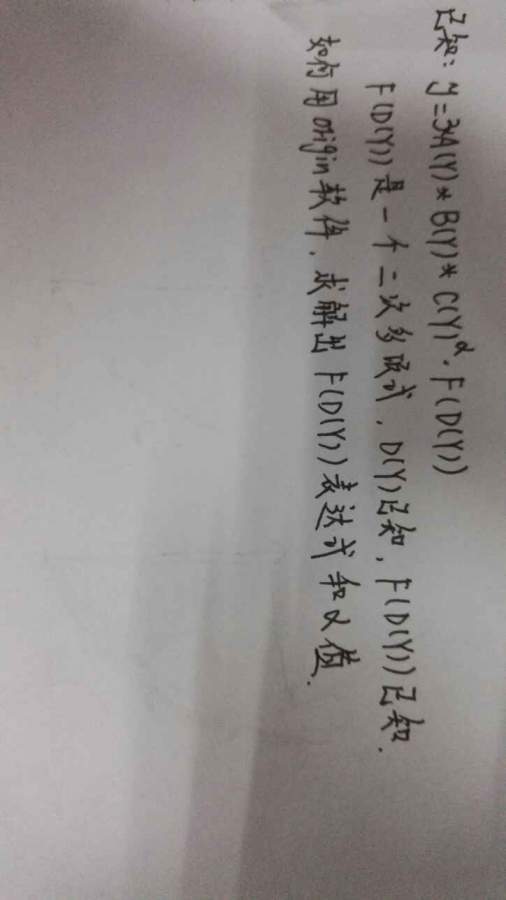 已知: y=3*A(Y)*B(Y)*C(Y)^α·F(D(Y))
F(D(Y))是一个二次多项式, D(Y)已知, F(D(Y))已知.
如何用origin软件, 求解出F(D(Y))表达式和α值.